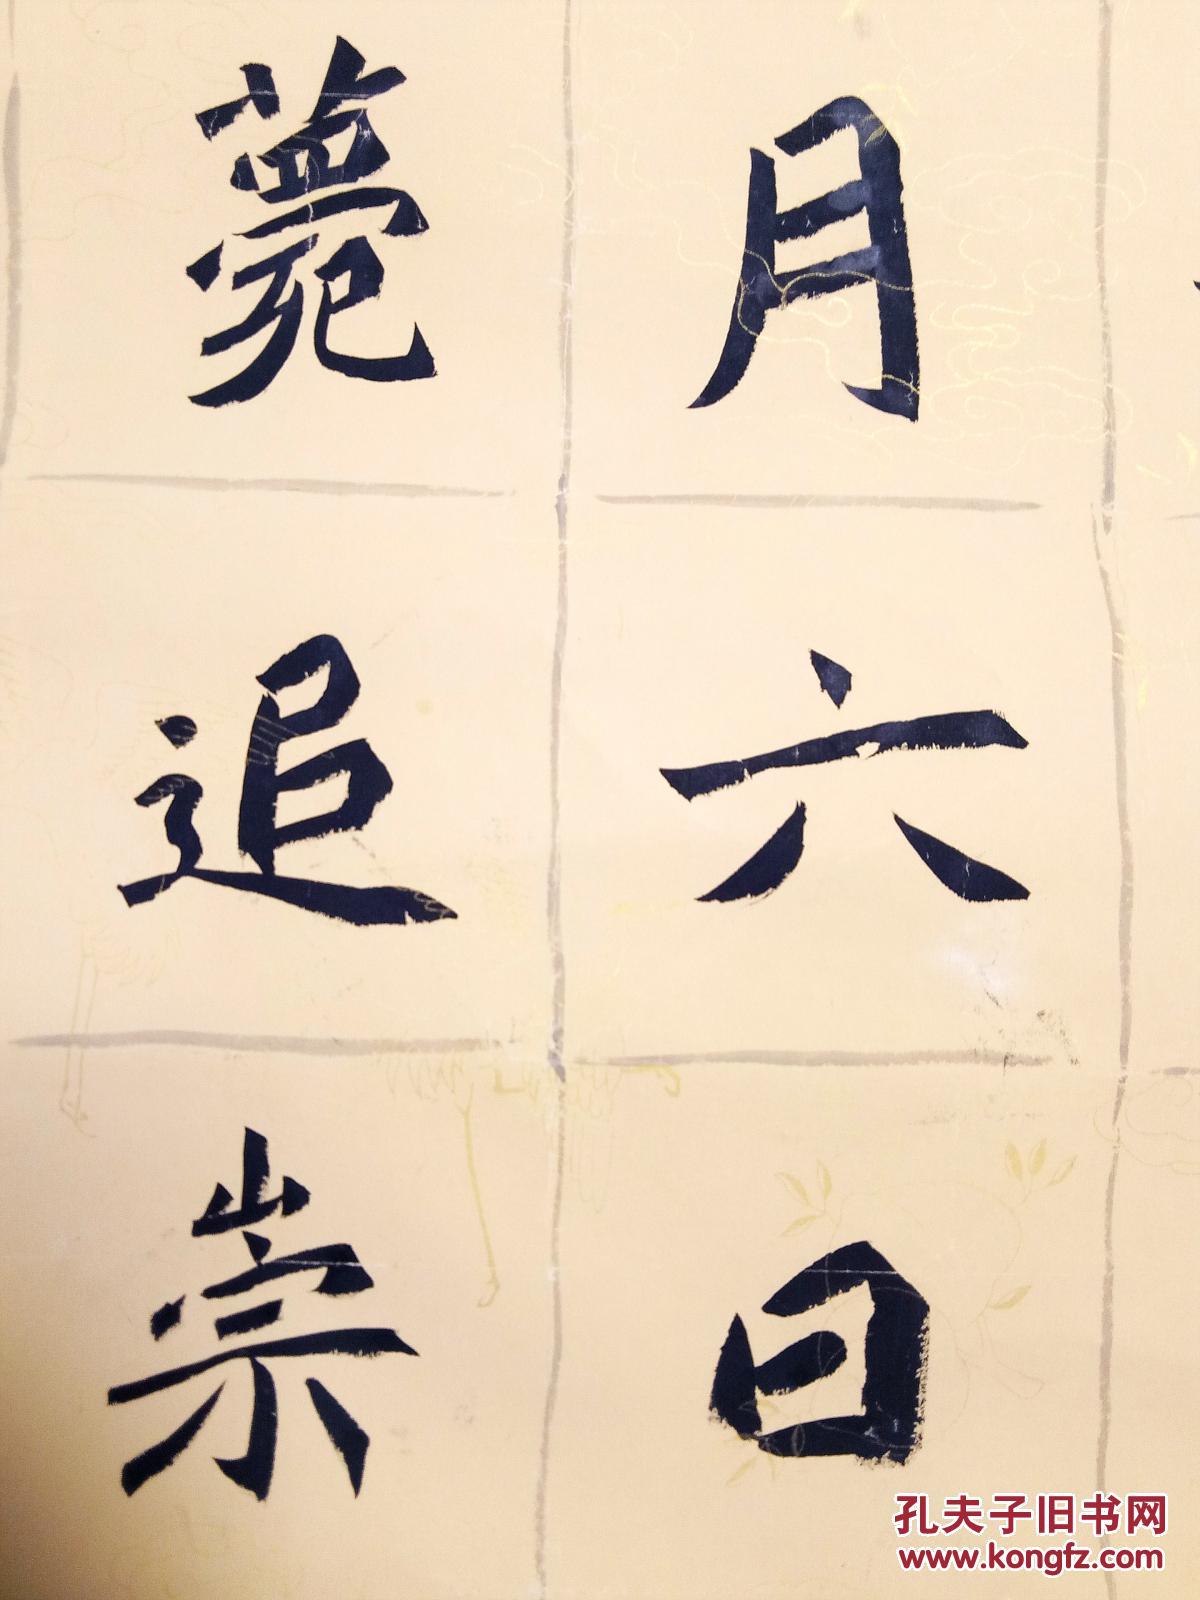 月六日
薨追崇
孔夫子旧书网
www.kongfz.com